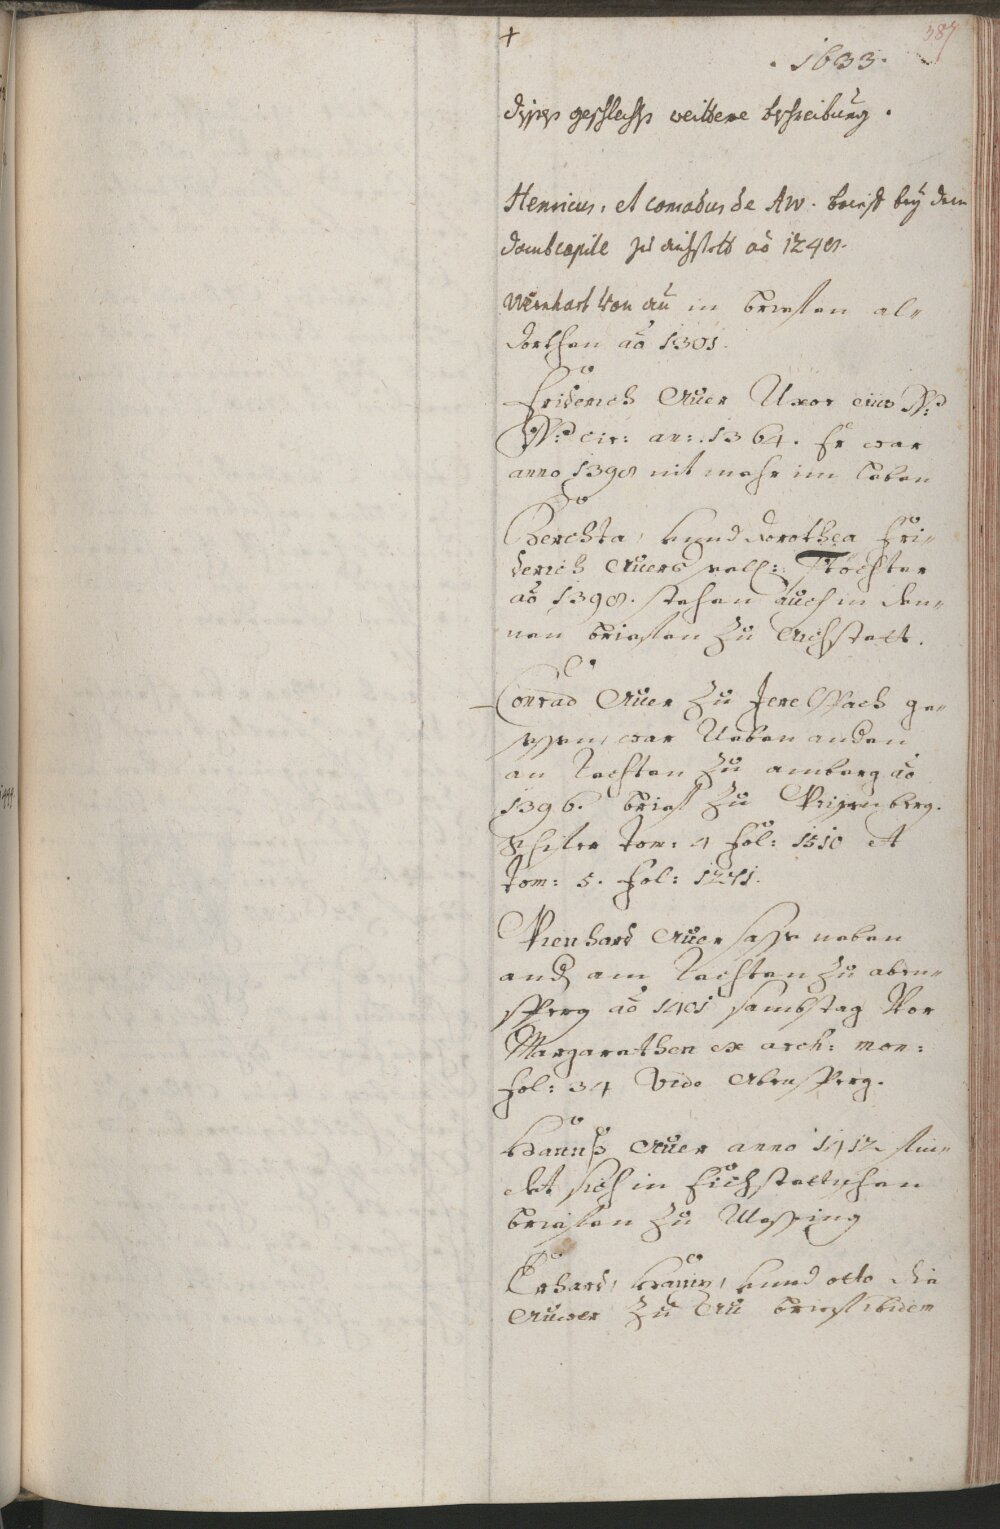 +
387
. 1633.
dises geschlechts weittere bschreibung .
Henricus, et conradus de Aw. brieff bey dem
dombcapitl zu aichstett aõ 1248.
Wernhart von au in briefen al-
dorthen aõ 1301.
Friderich Auer Uxor eius N:
N: cir: an: 1364. Er war
anno 1398 nit mehr im leben
Berchta, vnnd Dorothea Fri-
derich Auers sell: Töchter
aõ 1398. stehen auch in den-
nen briefen zu Aichstett.
Conrad Auer zu ge-
sessen, war Neben andern
an Rechten zu amberg aõ
1396. brief zu
Tom: 4 fol: 1510 et
Tom: 5. fol: 1241.
Rienhard Auer sasse neben
and am Rechten zu aben-
sperg aõ 1401 sambstag Vor
Margarethen ex arch: mon:
fol: 34 Vide Abensperg.
Hannß Auer anno 1412 fin-
det sich in Eichstettischen
briefen zu Messing
Erhard, Hanns, vnnd otto die
Auwer zu Au brieff ibidem